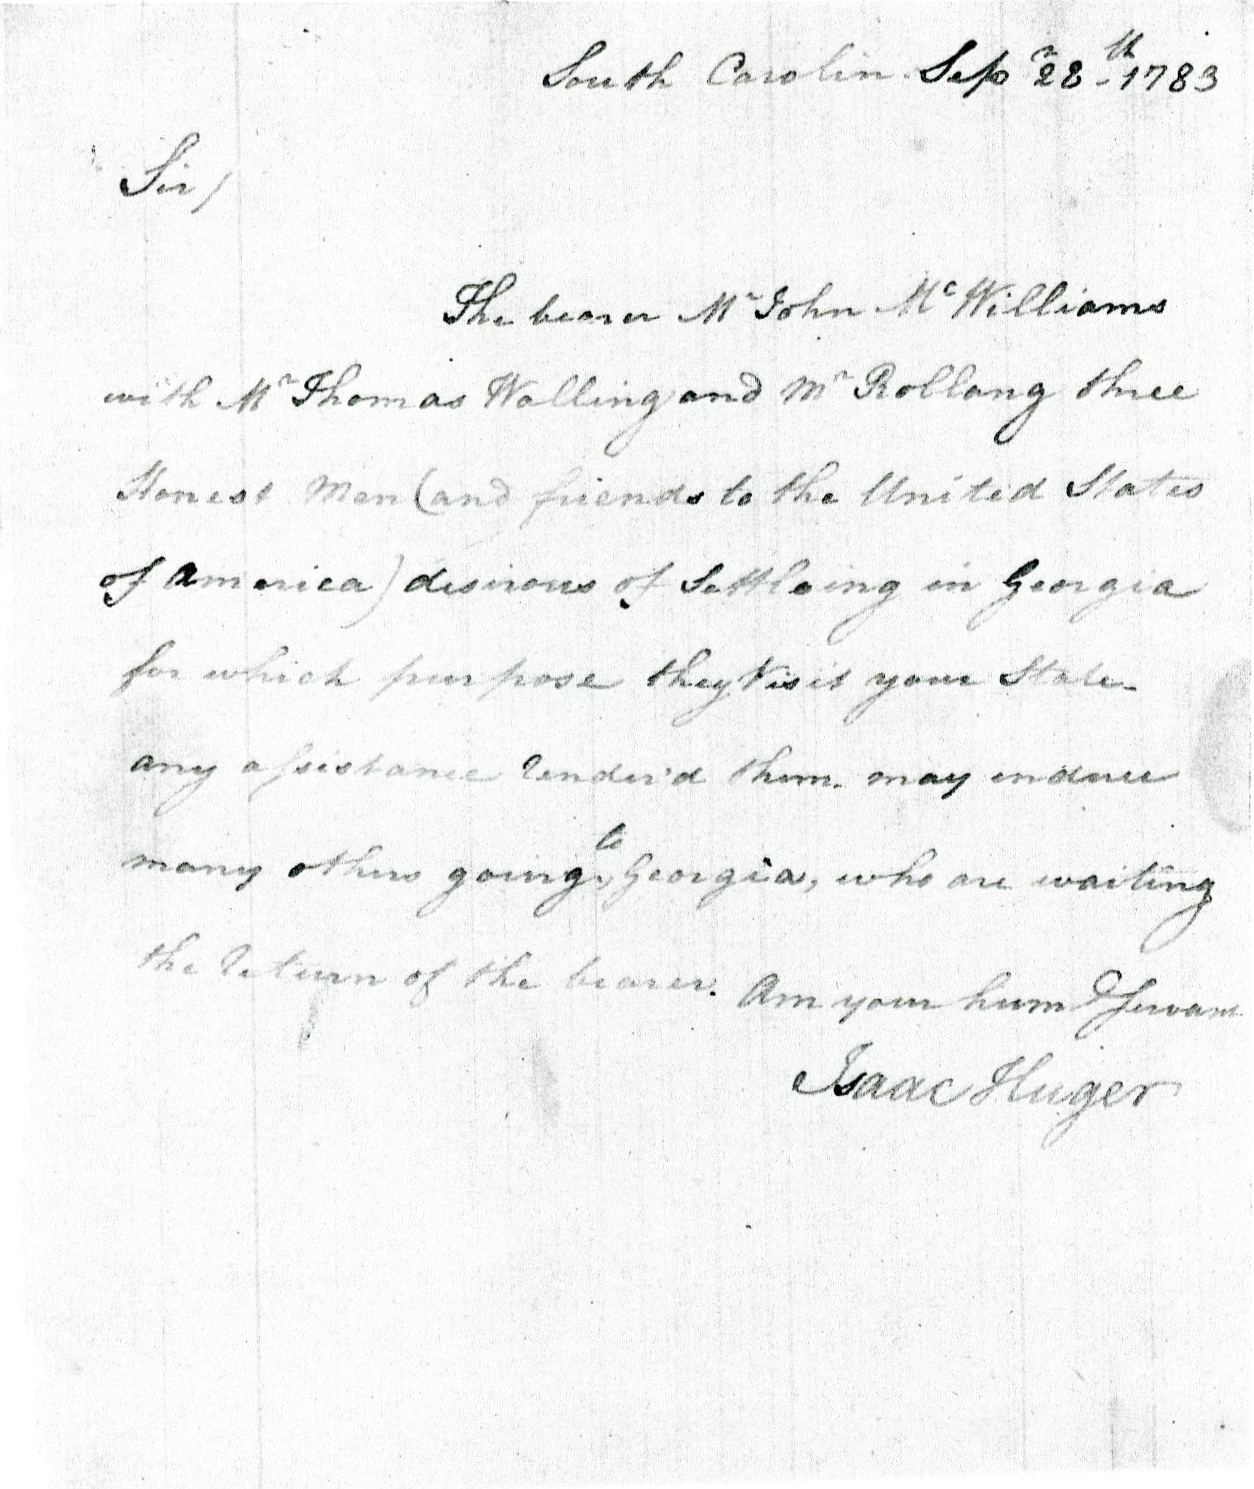 South Carolin Sepr 28th 1783
Sir/
The bearer Mr John McWilliams
with Mr Thomas Walling and Mr Rollang three
Honest Men (and friends to the United States
of America) desirous of Settleing in Georgia
for which purpose they Visit your State.
any assistance render'd them. may enduce
many others going to Georgia, who are waiting
the return of the bearer. Am your hum
Isaac Huger